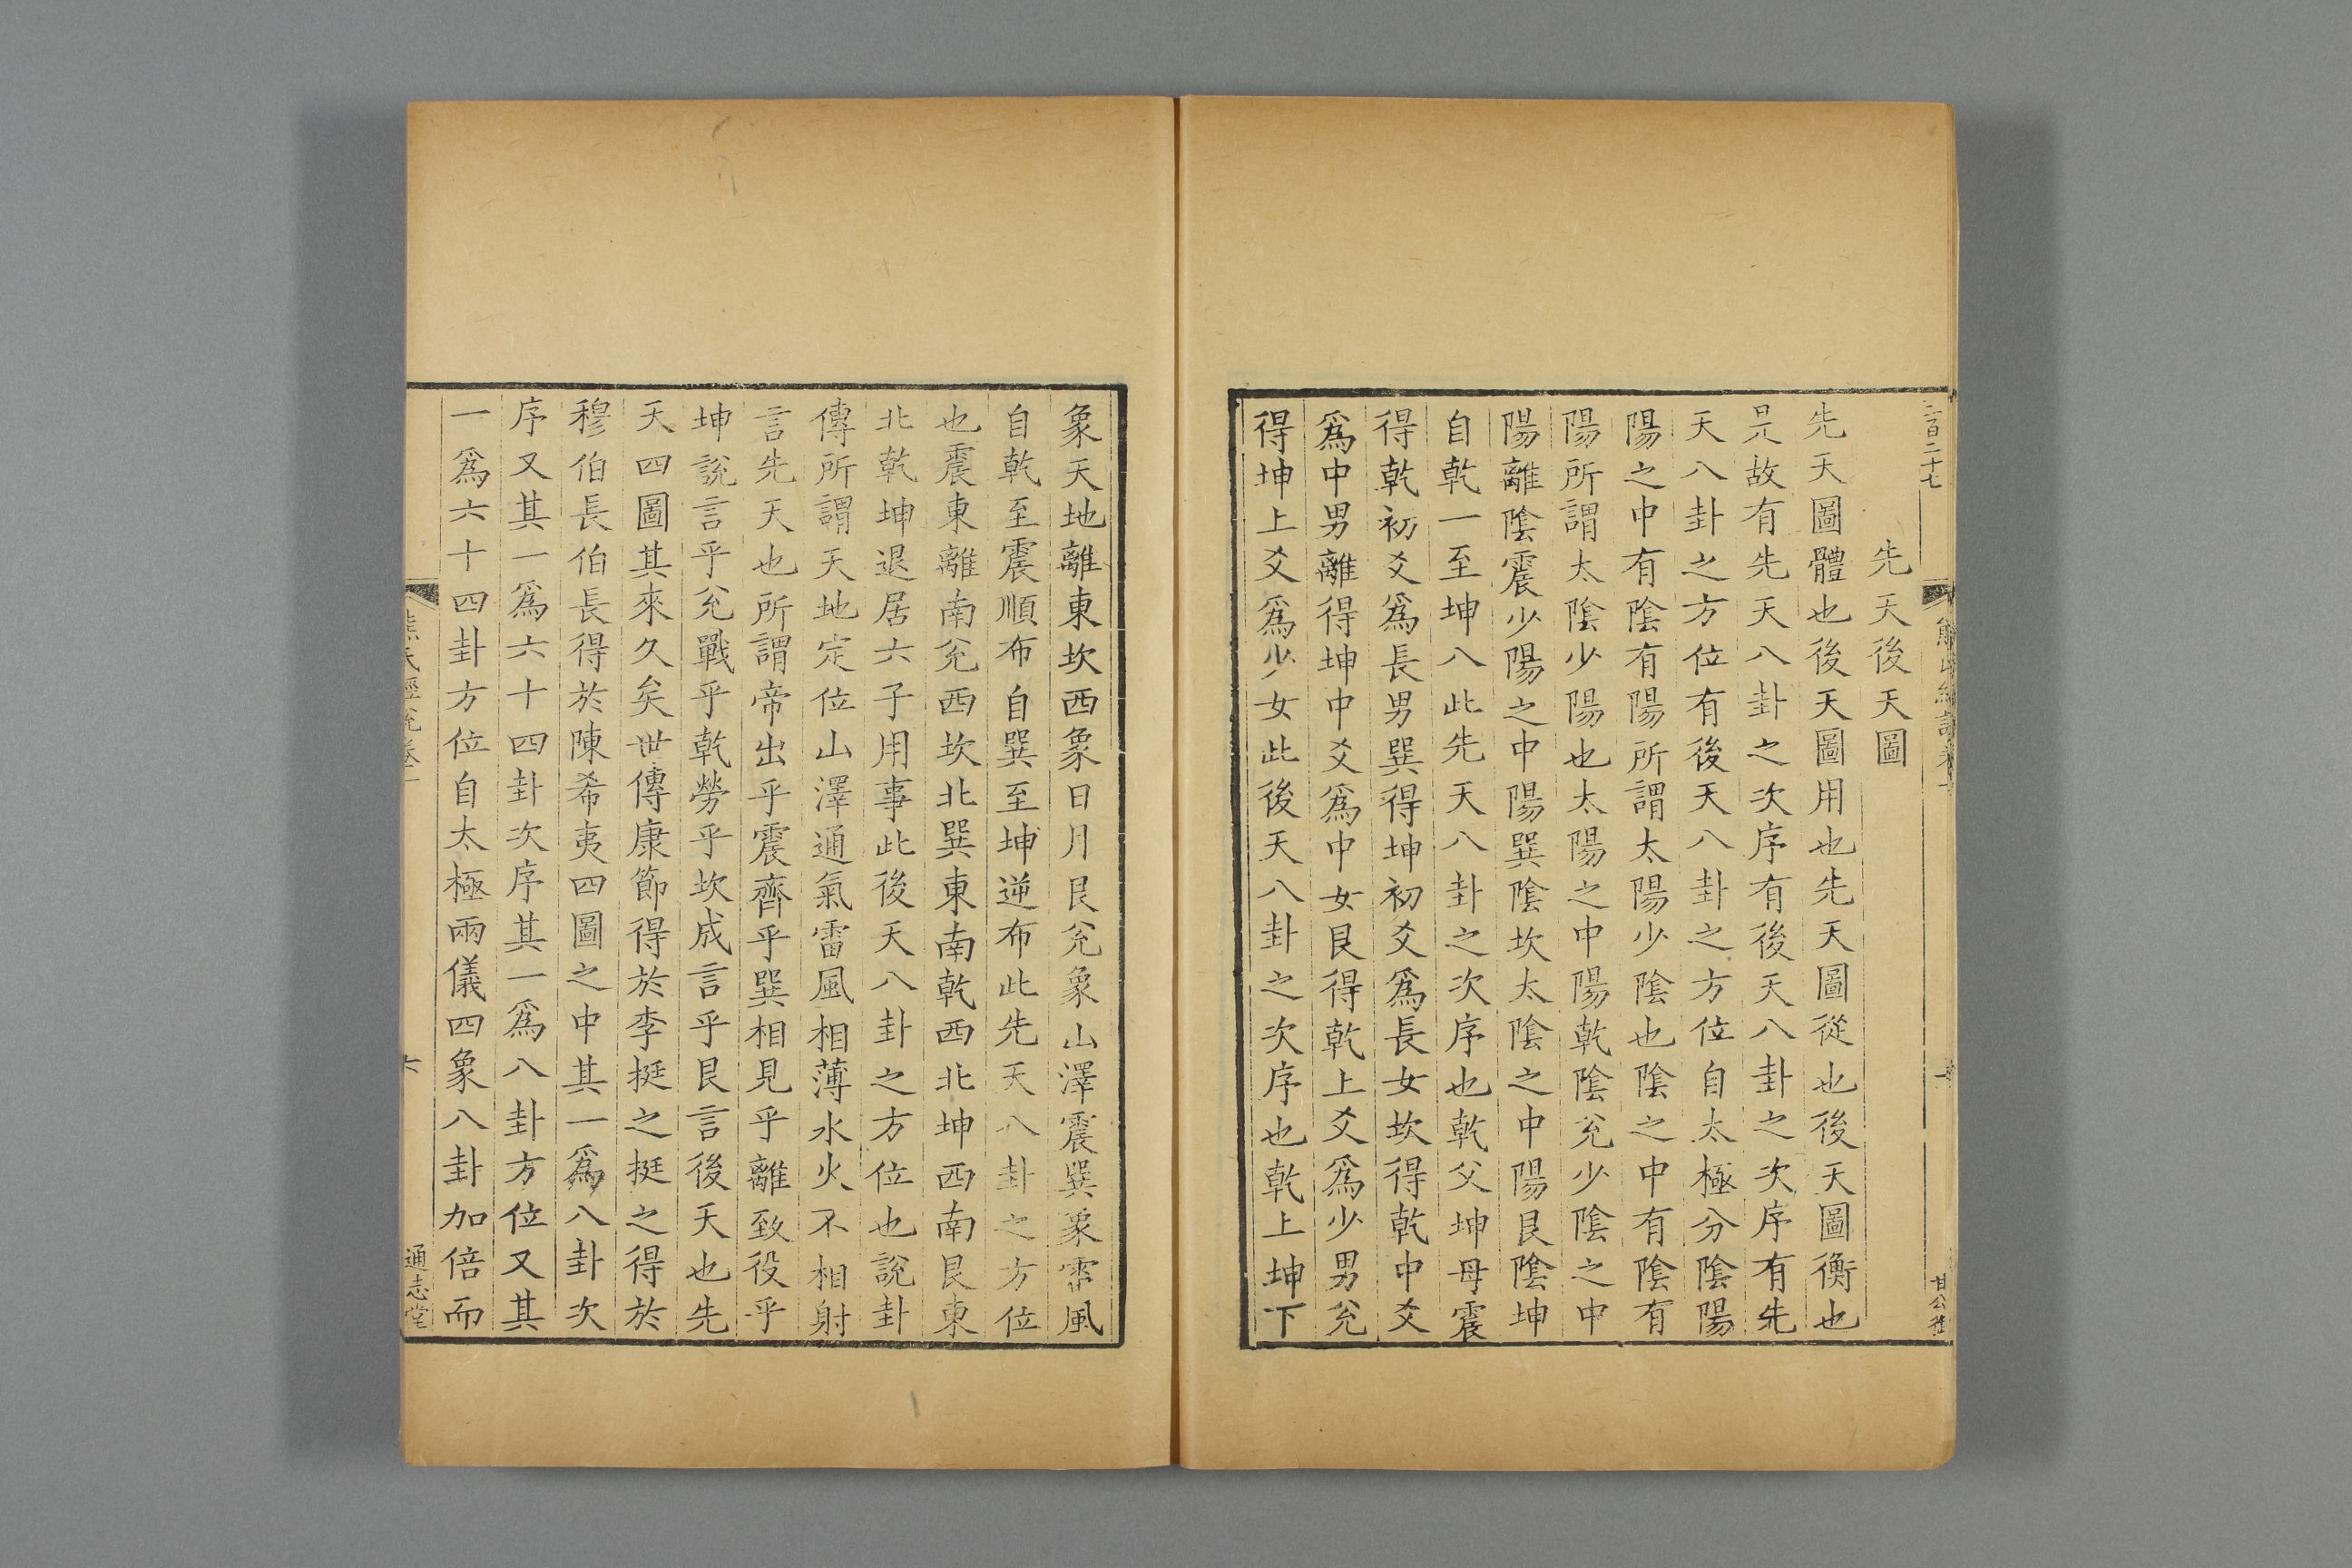 三百二十七
甘公
先天後天圖
先天圖體也後天圖用也先天圖從也後天圖衡也
是故有先天八卦之次序有後天八卦之次序有先
天八卦之方位有後天八卦之方位自太極分陰陽
陽之中有陰有陽所謂太陽少陰也陰之中有陰有
陽所謂太陰少陽也太陽之中陽乾陰兊少陰之中
陽離陰震少陽之中陽巽陰坎太陰之中陽艮陰坤
自乾一至坤八此先天八卦之次序也乾父坤母震
得乾初爻爲長男巽得坤初爻爲長女坎得乾中爻
爲中男離得坤中爻爲中女艮得乾上爻爲少男兊
得坤上爻爲少女此後天八卦之次序也乾上坤下
象天地離東坎西象日月艮兊象山澤震巽象雷風
自乾至震順布自巽至坤逆布此先天八卦之方位
也震東離南兊西坎北巽東南乾西北坤西南艮東
北乾坤退居六子用事此後天八卦之方位也說卦
傳所謂天地定位山澤通氣雷風相薄水火不相射
言先天也所謂帝出乎震齊乎巽相見乎離致役乎
坤說言乎兊戰乎乾勞乎坎成言乎艮言後天也先
天四圖其來久矣世傳康節得於李挺之挺之得於
穆伯長伯長得於陳希夷四圖之中其一爲八卦次
序又其一爲六十四卦次序其一爲八卦方位又其
一爲六十四卦方位自太極兩儀四象八卦加倍而
通志堂